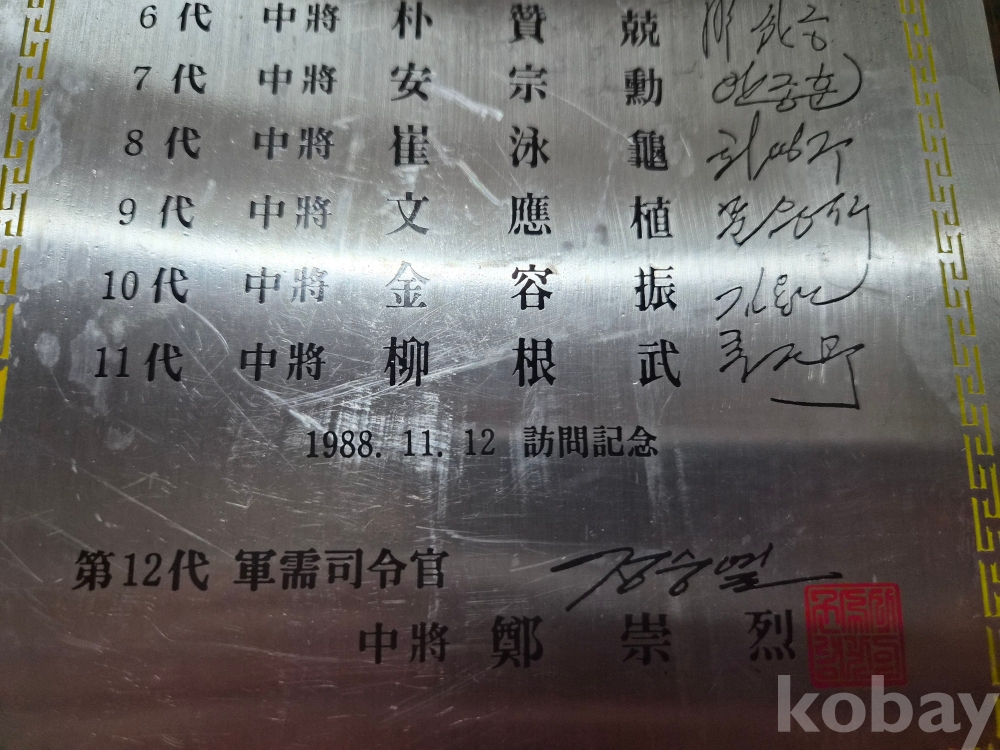 6代 中將 朴贊兢
7代 中將 安宗勳 안종훈
8代 中將 崔泳龜 최영구
9代 中將 文應植 문응식
10代 中將 金容振
11代 中將 柳根武
1988. 11. 12 訪問記念
第12代 軍需司令官 정숭열
中將 鄭崇烈
kobay